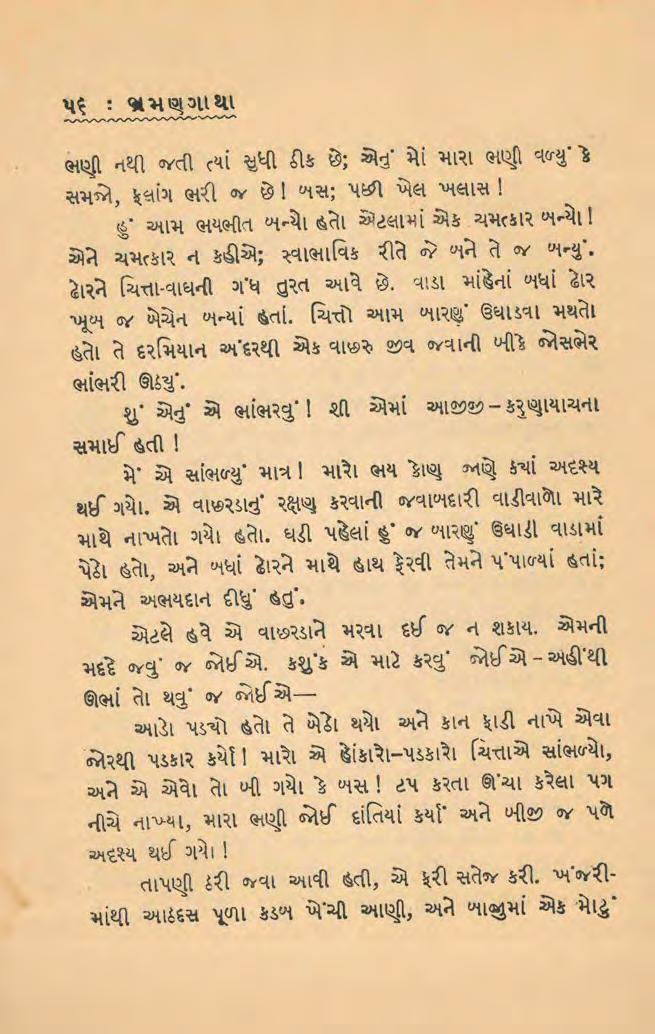 ૫૬ : ભ્રમણગાથા
ભણી નથી જતી ત્યાં સુધી ઠીક છે; એનું મોં મારા ભણી વળ્યું કે
સમજો, ફલાંગ ભરી જ છે! બસ; પછી ખેલ ખલાસ!
હું આમ ભયભીત બન્યો હતો એટલામાં એક ચમત્કાર બન્યો!
એને ચમત્કાર ન કહીએ; સ્વાભાવિક રીતે જે બને તે જ બન્યું.
ઢોરને ચિત્તા-વાઘની ગંધ તુરત આવે છે. વાડા માંહેનાં બધાં ઢોર
ખૂબ જ બેચેન બન્યાં હતાં. ચિત્તો આમ બારણું ઉઘાડવા મથતો
હતો તે દરમિયાન અંદરથી એક વાછરુ જીવ જવાની બીકે જોસભેર
ભાંભરી ઊઠ્યું.
શું એનું એ ભાંભરવું! શી એમાં આજીજી – કરુણાયાચના
સમાઈ હતી!
મેં એ સાંભળ્યું માત્ર! મારો ભય કોણ જાણે ક્યાં અદશ્ય
થઈ ગયો. એ વાછરડાનું રક્ષણ કરવાની જવાબદારી વાડીવાળો મારે
માથે નાખતો ગયો હતો. ઘડી પહેલાં હું જ બારણું ઉઘાડી વાડામાં
પેઠો હતો, અને બધાં ઢોરને માથે હાથ ફેરવી તેમને પંપાળ્યાં હતાં;
એમને અભયદાન દીધું હતું.
એટલે હવે એ વાછરડાને મરવા દઈ જ ન શકાય. એમની
મદદે જવું જ જોઈએ. કશુંક એ માટે કરવું જોઈએ – અહીંથી
ઊભાં તો થવું જ જોઈએ—
આડો પડ્યો હતો તે બેઠો થયો અને કાન ફાડી નાખે એવા
જોરથી પડકાર કર્યો! મારો એ હોંકારો–પડકારો ચિત્તાએ સાંભળ્યો,
અને એ એવો તો બી ગયો કે બસ! ટપ કરતા ઊંચા કરેલા પગ
નીચે નાખ્યા, મારા ભણી જોઈ દાંતિયાં કર્યાં અને બીજી જ પળે
અદશ્ય થઈ ગયો!
તાપણી ઠરી જવા આવી હતી, એ ફરી સતેજ કરી. ખંજરી-
માંથી આઠદસ પૂળા કડબ ખેંચી આણી, અને બાજુમાં એક મોટું